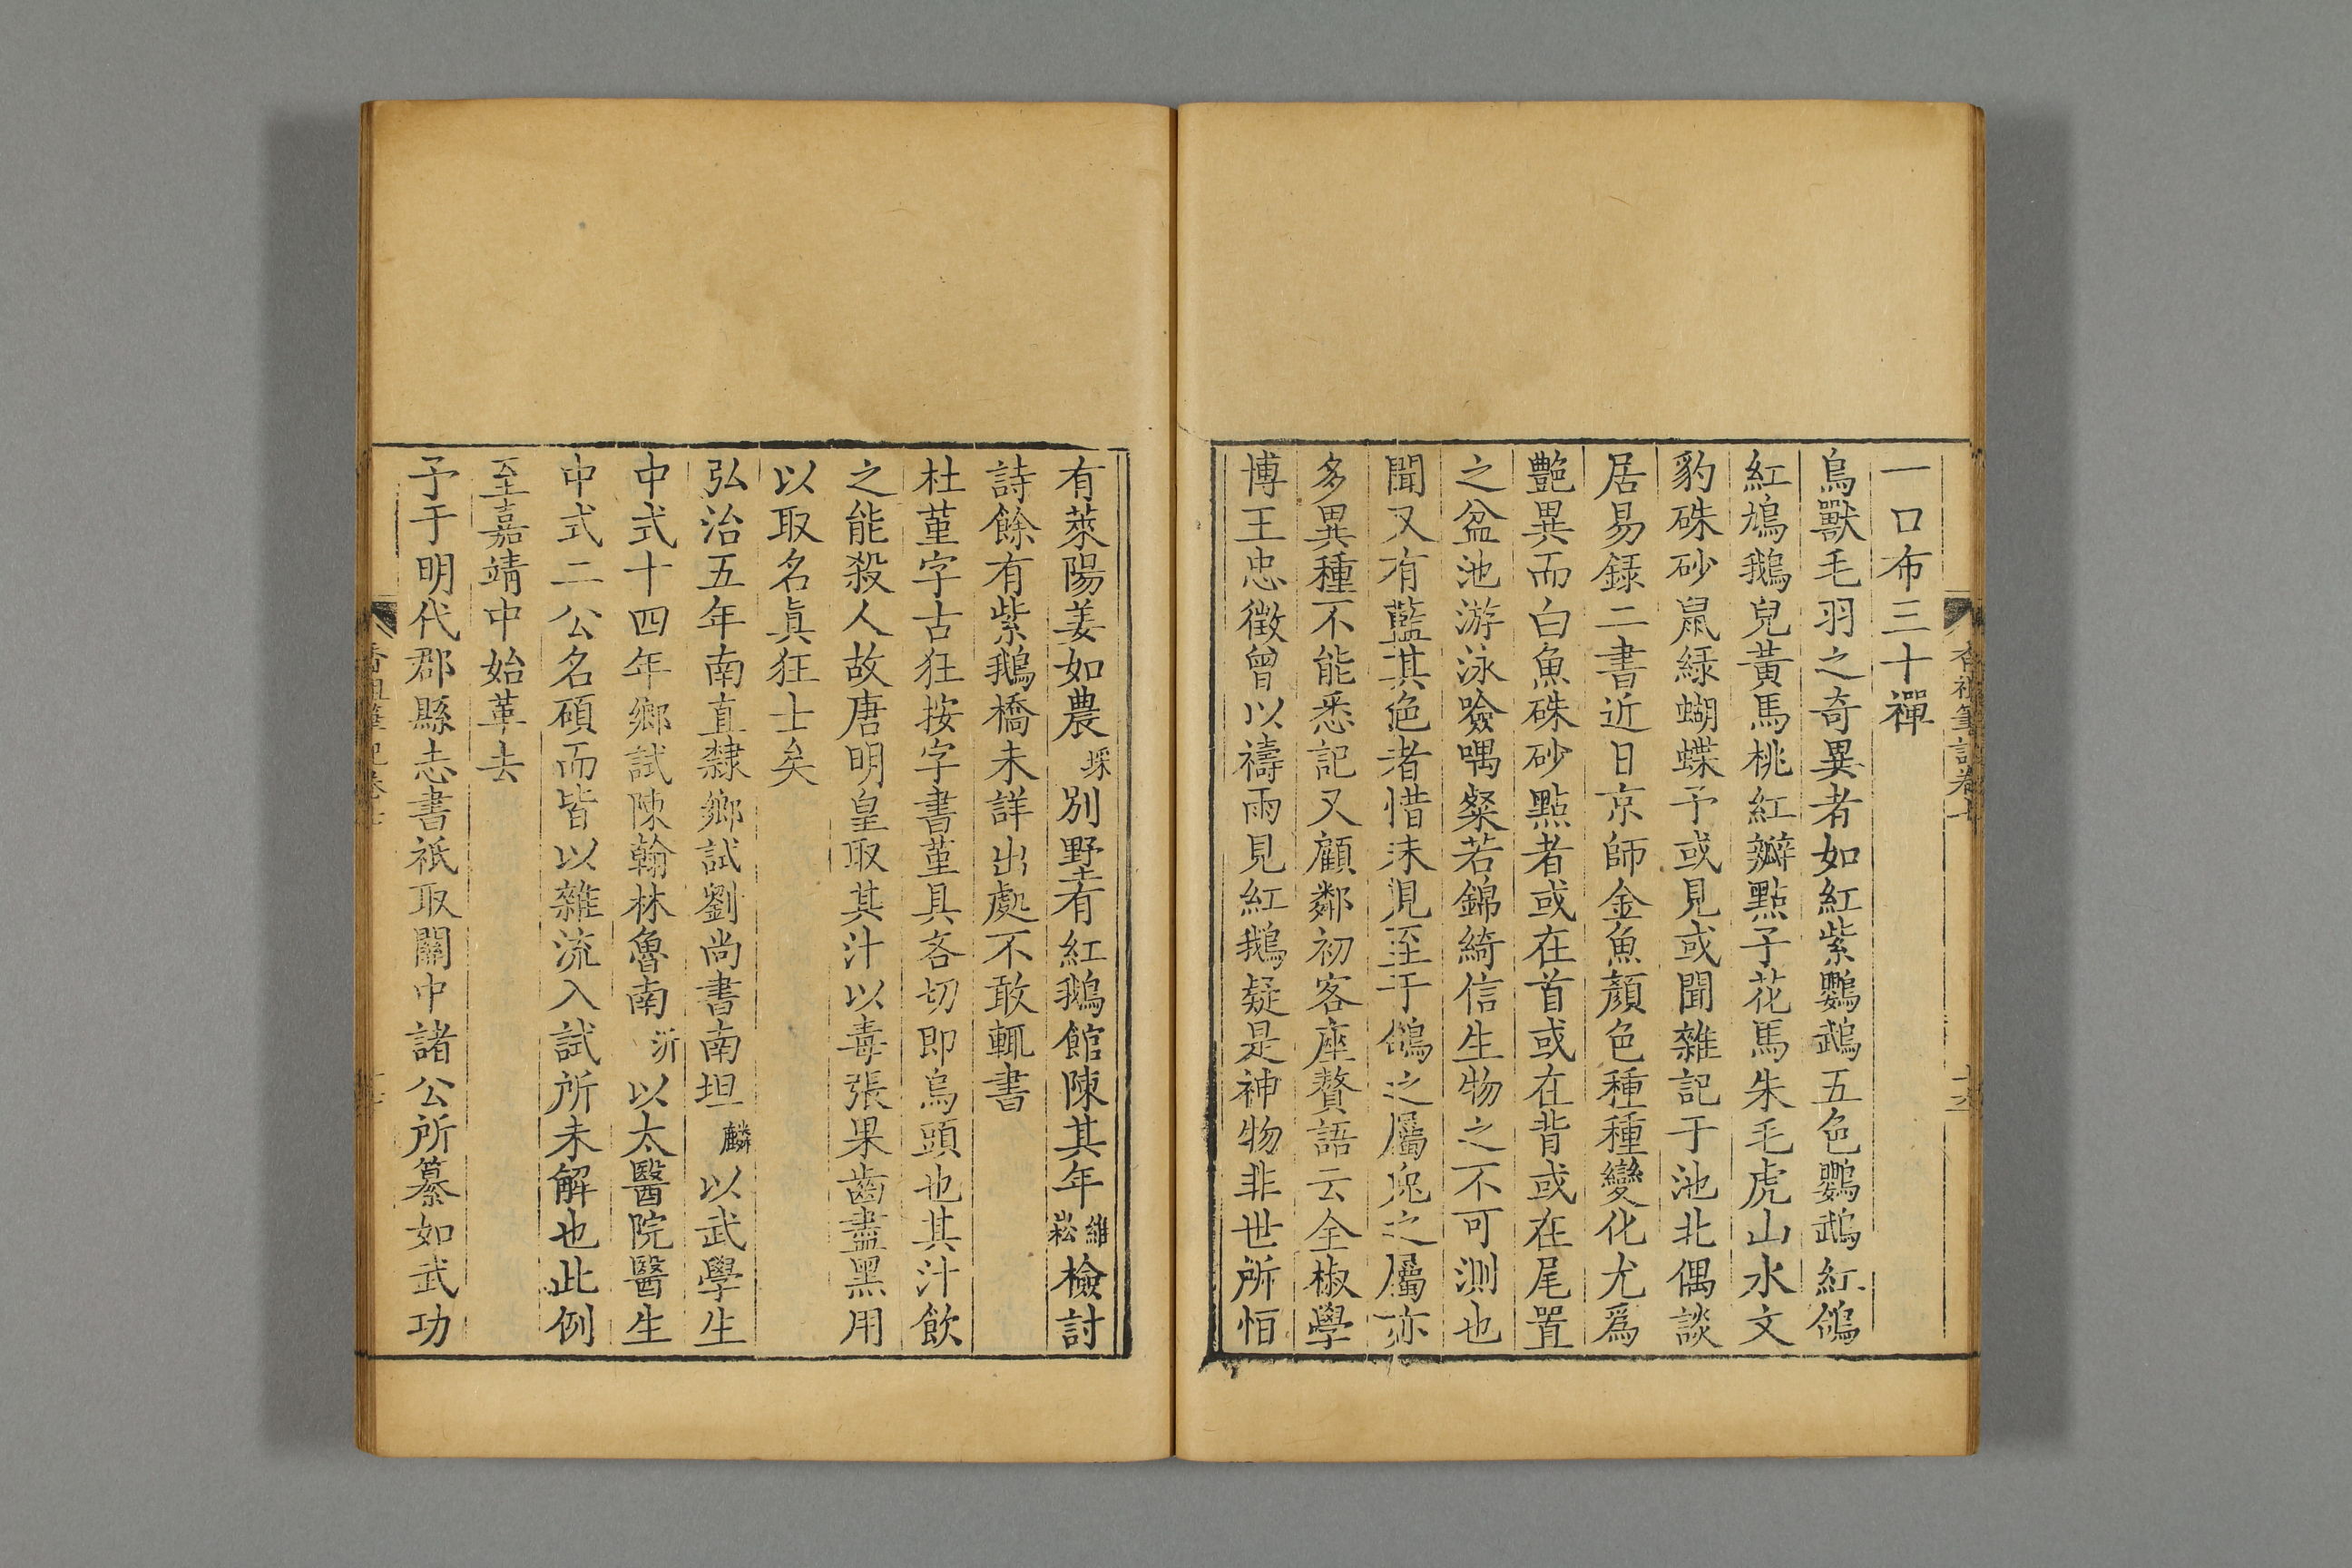 香祖筆記卷七
一口布三十禪
鳥獸毛羽之奇異者如紅紫鸚鵡五色鸚鵡紅鴿
紅鳩鵝兒黃馬桃紅瓣點子花馬朱毛虎山水文
豹硃砂鼠緑蝴蝶予或見或聞雜記于池北偶談
居易録二書近日京師金魚顏色種種變化尤爲
艶異而白魚硃砂點者或在首或在背或在尾置
之盆池游泳噞喁粲若錦綺信生物之不可測也
聞又有藍其色者惜未見至于鴿之屬兎之屬亦
多異種不能悉記又顧鄰初客座贅語云全椒學
博王忠徵曾以禱雨見紅鵝疑是神物非世所恒
有萊陽姜如農埰別野有紅鵝館陳其年維崧檢討
詩餘有紫鵝橋未詳出處不敢輒書
杜菫字古狂按字書菫具吝切即烏頭也其汁飲
之能殺人故唐明皇取其汁以毒張果齒盡黑用
以取名眞狂士矣
弘治五年南直隸鄉試劉尚書南坦麟以武學生
中式十四年鄉試陳翰林魯南沂以太醫院醫生
中式二公名碩而皆以雜流入試所未解也此例
至嘉靖中始革去
予于明代郡縣志書祇取關中諸公所纂如武功
香祖筆記卷七